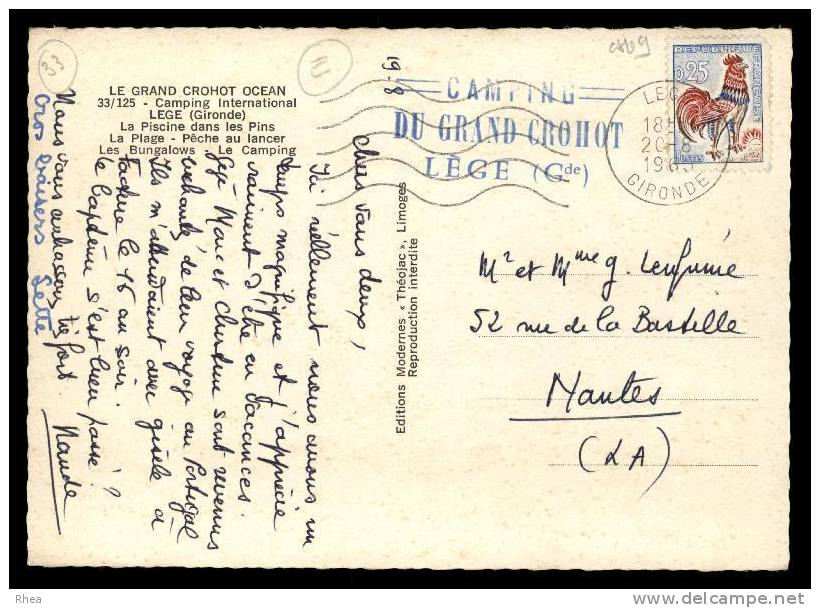 LE GRAND CROHOT OCEAN
33/125 - Camping International
LEGE (Gironde)
La Piscine dans les Pins
La Plage - Pêche au lancer
Les Bungalows - Le Camping
33
19-8
CAMPING
DU GRAND CROHOT
LÈGE (Gde)
LEGE
18H
20-8
GIRONDE
REPUBLIQUE FRANCAISE
0,25
Chers vous deux,
Ici réellement nous avons un
temps magnifique et j'apprécie
vraiment d'être en vacances.
Gégé Marc et Christine sont revenus
enchantés de leur voyage au Portugal
Ils m'attendaient avec Gisèle à
Facture le 16 au soir.
le baptême s'est bien passé ?
Nous vous embrassons très fort. Nanda
Gros baisers Gette
Editions Modernes « Théojac », Limoges
Reproduction interdite
Mr et Mme G.
52 rue de la Bastille
Nantes
(LA)
Rhea
www.delcampe.net